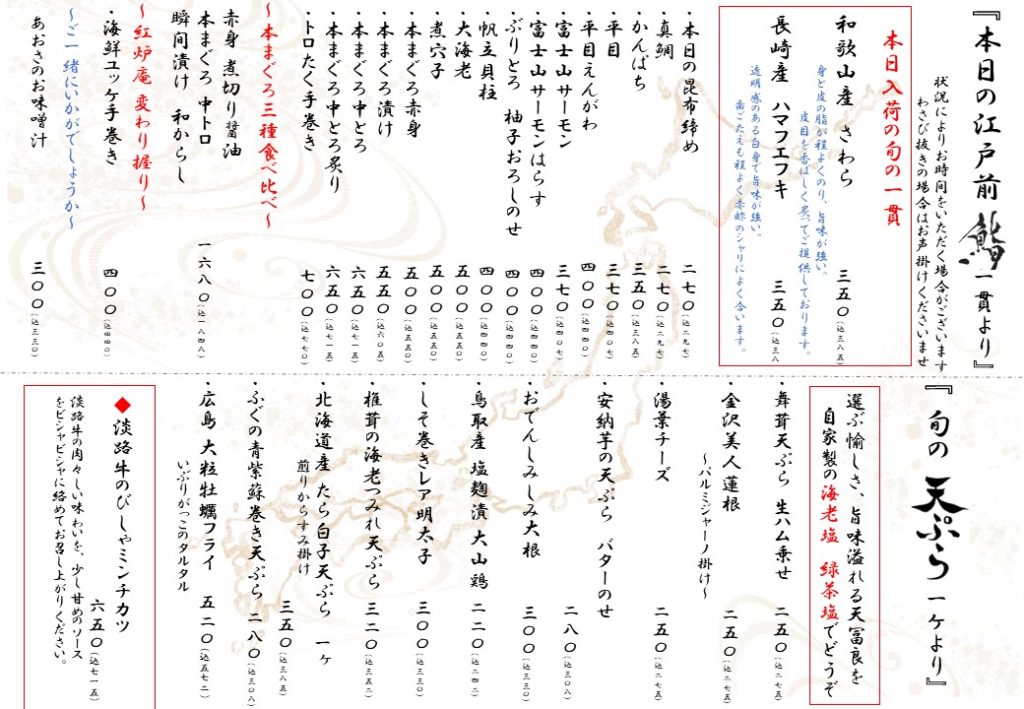 『本日の江戸前 鮨 一貫より』
状況によりお時間をいただく場合がございます
わさび抜きの場合はお声掛けくださいませ
本日入荷の旬の一貫
和歌山産 さわら 三五〇(込三八五)
身と皮の脂が程よくのり、旨味が強い。
皮目を香ばしく炙ってご提供しております。
長崎産 ハマフエフキ 三五〇(込三八
透明感のある白身で旨味が強い。
歯ごたえも程よく赤酢のシャリによく合います。
・本日の昆布締め 二七〇(込二九七)
・真鯛 二七〇(込二九七)
・かんぱち 三五〇(込三八五)
・平目 三七〇(込四〇七)
・平目えんがわ 四〇〇(込四四〇)
・富士山サーモン 三七〇(込四〇七)
・富士山サーモンはらす 四〇〇(込四四〇)
・ぶりとろ 柚子おろしのせ 四〇〇(込四四〇)
・帆立貝柱 四〇〇(込四四〇)
・大海老 五〇〇(込五五〇)
・煮穴子 五〇〇(込五五〇)
・本まぐろ赤身 五〇〇(込五五〇)
・本まぐろ漬け 五五〇(込六〇五)
・本まぐろ中とろ 六五〇(込七一五)
・本まぐろ中とろ炙り 六五〇(込七一五)
・トロたく手巻き 七〇〇(込七七〇)
～本まぐろ三種食べ比べ～
赤身 煮切り醤油
本まぐろ 中トロ
瞬間漬け 和からし 一六八〇(込一八四八)
～紅炉庵 変わり握り～
・海鮮ユッケ手巻き 四〇〇(込四四〇)
～ご一緒にいかがでしょうか～
あおさのお味噌汁 三〇〇(込三三〇)
『旬の 天ぷら 一ヶより』
選ぶ愉しさ、旨味溢れる天冨良を
自家製の海老塩 緑茶塩でどうぞ
・舞茸天ぷら 生ハム乗せ 二五〇(込二七五)
・金沢美人蓮根 二五〇(込二七五)
～パルミジャーノ掛け～
・湯葉チーズ 二五〇(込二七五)
・安納芋の天ぷら バターのせ 二八〇(込三〇八)
・おでんしみしみ大根 三〇〇(込三三〇)
・鳥取産 塩麹漬 大山鶏 二二〇(込二四二)
・しそ巻きレア明太子 三〇〇(込三三〇)
・椎茸の海老つみれ天ぷら 三二〇(込三五二)
・北海道産 たら白子天ぷら 一ヶ
煎りからすみ掛け 三五〇(込三八五)
・ふぐの青紫蘇巻き天ぷら 二八〇(込三〇八)
・広島 大粒牡蠣フライ 五二〇(込五七二)
いぶりがっこのタルタル
◆淡路牛のびしゃミンチカツ 六五〇(込七一五)
淡路牛の肉々しい味わいを、少し甘めのソース
をビシャビシャに絡めてお召し上がりください。